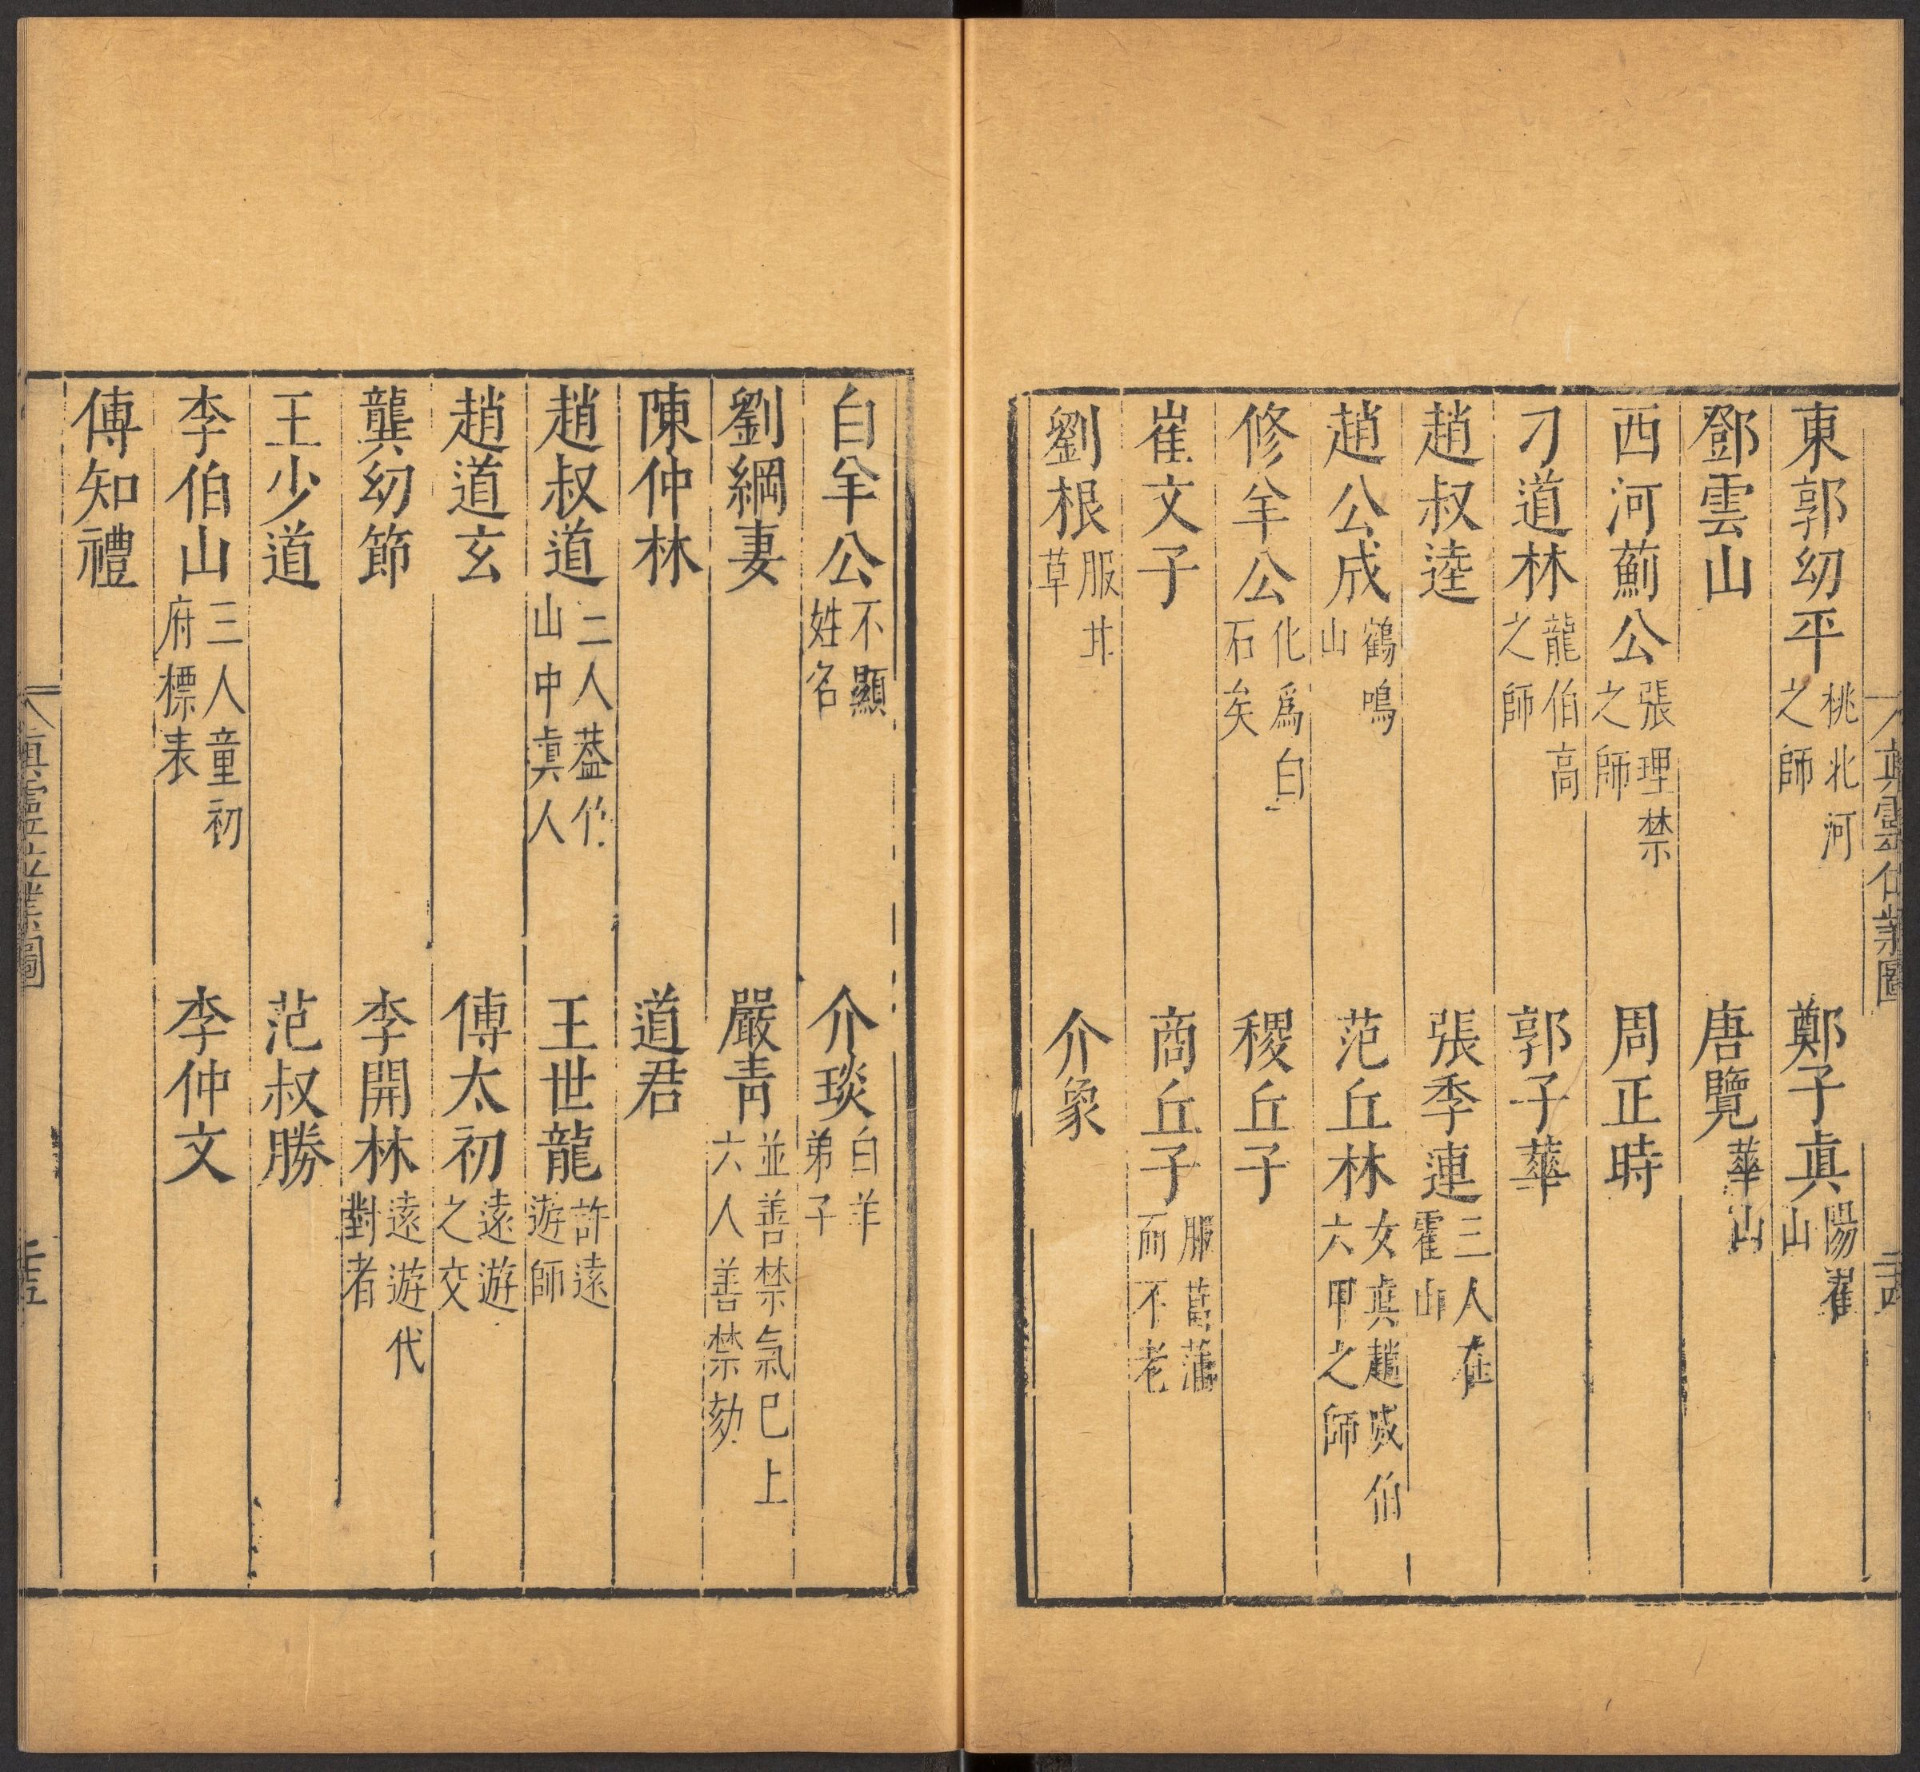 真靈位業圖
二十四
東郭幼平桃北河之師　鄭子真陽翟山
鄧雲山　唐覽華山
西河薊公張理禁之師　周正時
刁道林龍伯高之師　郭子華
趙叔逵　張季連三人在霍山
趙公成鶴鳴山　范丘林女真趙威伯六甲之師
修羊公化爲白石矣　稷丘子
崔文子　商丘子服葍蒲而不老
劉根服井草　介象
白羊公不顯姓名　介琰白羊弟子
劉綱妻　嚴青並善禁氣巳上六人善禁劾
陳仲林　道君
趙叔道二人葢竹山中眞人　王世龍許遠遊師
趙道玄　傅太初遠遊之交
龔幼節　李開林遠遊代對者
王少道　范叔勝
李伯山三人童初府標表　李仲文
傅知禮
眞靈位業圖
二十五